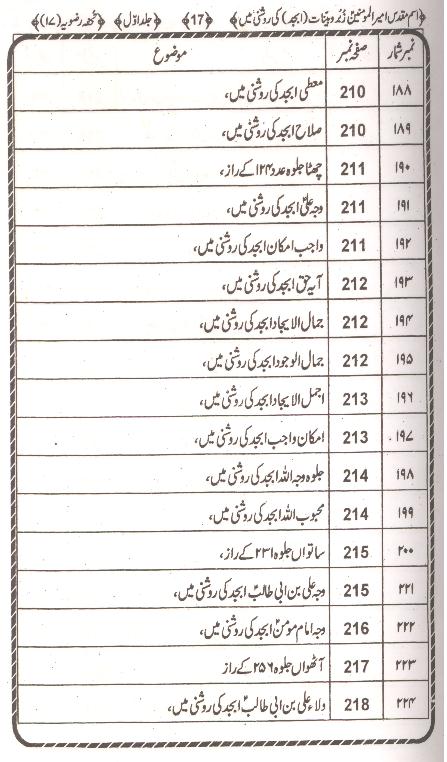 ﴿اسم مقدس امیر المؤمنین زُبُر و بینات (ابجد) کی روشنی میں﴾ ﴿17﴾ ﴿جلد اوّل﴾ ﴿تحفہ رضویہ (۱۷)﴾
نمبر شمار صفحہ نمبر موضوع
۱۸۸ 210 معطی ابجد کی روشنی میں،
۱۸۹ 210 صلاح ابجد کی روشنی میں،
۱۹۰ 211 چھٹا جلوہ عدد ۱۲۴ کے راز،
۱۹۱ 211 وجہ علیؑ ابجد کی روشنی میں،
۱۹۲ 211 واجب امکان ابجد کی روشنی میں،
۱۹۳ 212 آیہ حق ابجد کی روشنی میں،
۱۹۴ 212 جمال الایجاد ابجد کی روشنی میں،
۱۹۵ 212 جمال الوجود ابجد کی روشنی میں،
۱۹۶ 213 اجمل الایجاد ابجد کی روشنی میں،
۱۹۷ 213 امکان واجب ابجد کی روشنی میں،
۱۹۸ 214 جلوہ وجہ اللہ ابجد کی روشنی میں،
۱۹۹ 214 محبوب اللہ ابجد کی روشنی میں،
۲۰۰ 215 ساتواں جلوہ ۲۳۱ کے راز،
۲۲۱ 215 وجہ علی بن ابی طالبؑ ابجد کی روشنی میں،
۲۲۲ 216 وجہ امام مومنؑ ابجد کی روشنی میں،
۲۲۳ 217 آٹھواں جلوہ ۲۵۶ کے راز
۲۲۴ 218 ولاء علی بن ابی طالبؑ ابجد کی روشنی میں،